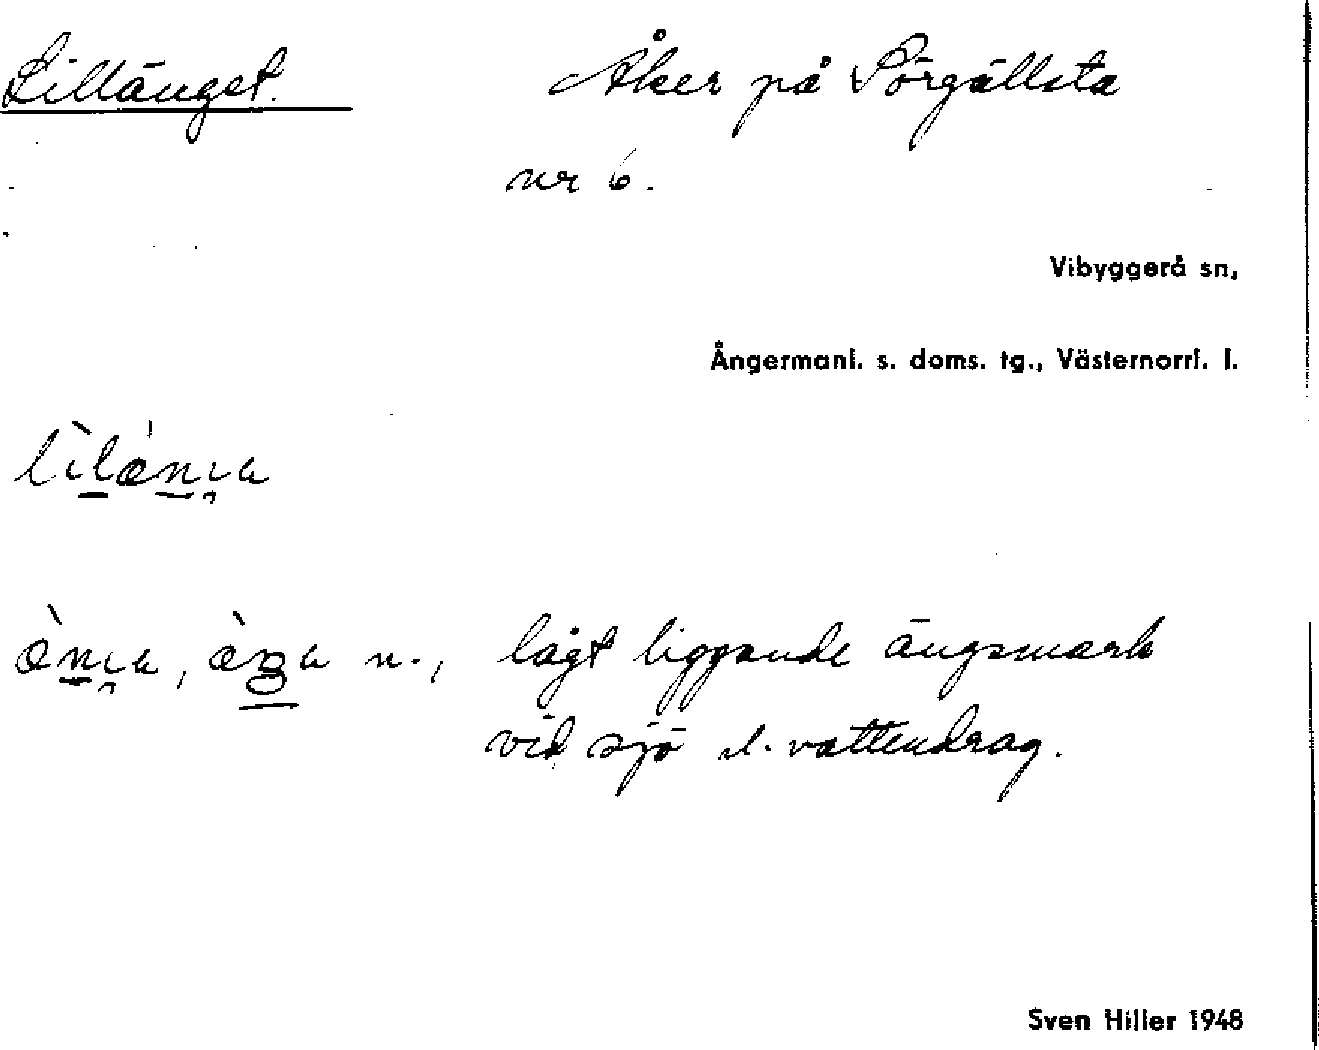 Lillänget. Åker på Sörgällsta
nr 6.
Vibyggerå sn,
Ångermanl. s. doms. tg., Västernorrl. l.
lågt liggande ängsmark
vid sjö l. vattendrag.
Sven Hiller 1948